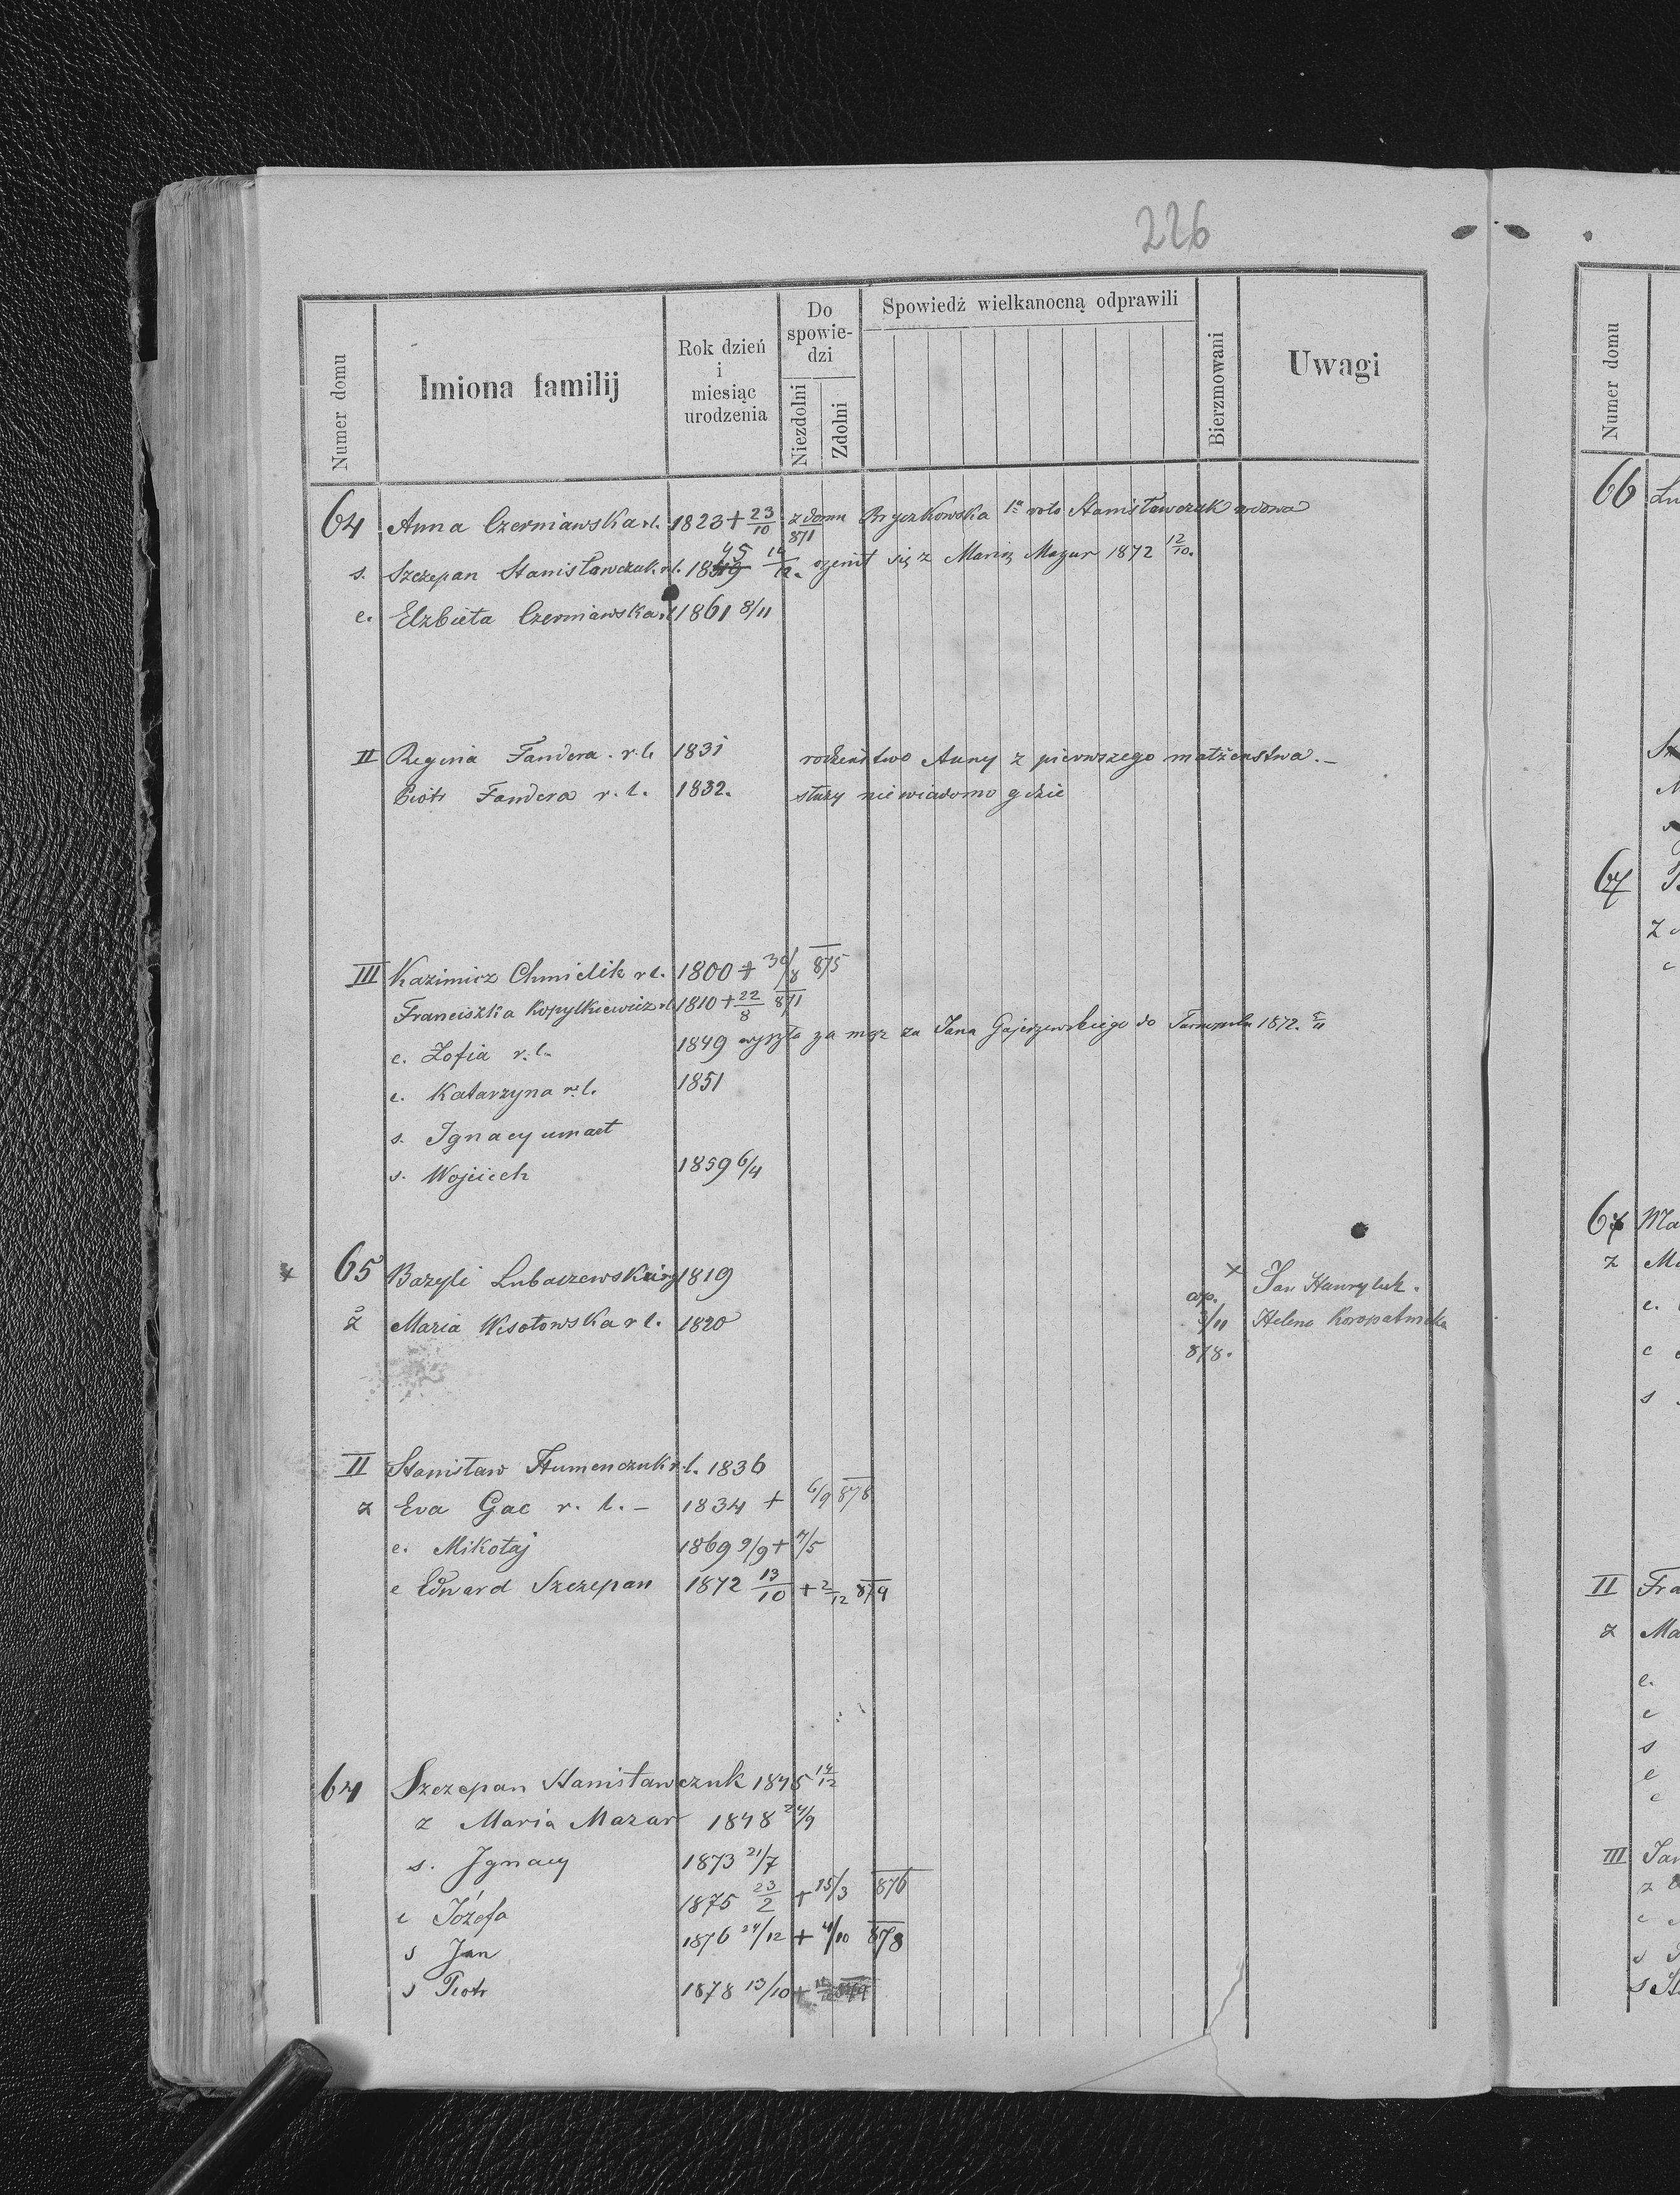 226
Numer domu
Imiona familij
Rok dzień i miesiąc urodzenia
Do spowiedzi
Niezdolni
Zdolni
Spowiedź wielkanocną odprawili
Bierzmowani
Uwagi
64 Anna Czerniawska r.l. 1823 + 23/10 871 z domu Bryczkowska 1º voto Stanisławczuk wdowa
s. Szczepan Stanisławczuk r.l. 1845 14/12. ożenił się z Marią Mazur 1872 12/10.
c. Elżbieta Czerniawska r.l. 1861 8/11
II Regina Fandera r.l. 1831 rodzeństwo Anny z pierwszego małżeństwa.—
Piotr Fandera r.l. 1832. służy niewiadomo gdzie
III Kazimirz Chmielik r.l. 1800 + 30/8 875
Franciszka Kopylkiewicz r.l. 1810 + 22/8 871
c. Zofia r.l. 1849 wyszła za mąż za Jana Gajerzewskiego do 1872.
c. Katarzyna r.l. 1851
s. Ignacy umarł
s. Wojciech 1859 6/4
x 65 Bazyli Lubaczewski 1819 x Jan Hawryluk.
ż Maria Wisołowska r.l. 1820 3/11 878. Helena Koropatnicka
II Stanisław Humenczuk r.l. 1836
z Eva Gac r.l.— 1834 + 6/9 878
c. Mikołaj 1869 9/9 + 7/5
c Edward Szczepan 1872 13/10 + 2/12 874
64 Szczepan Stanisławczuk 1845 14/12
z Maria Mazur 1848 24/9
s. Ignacy 1873 21/7
c Józefa 1875 23/2 + 25/3 876
s Jan 1876 24/12 + 4/10 878
s Piotr 1878 13/10 +
Numer domu
66
67
67
z
II
z
III